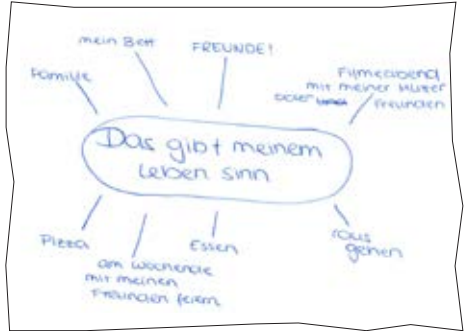 mein Bett
FREUNDE!
Familie
Filmeabend
mit meiner Mutter
oder
Freunden
Das gibt meinem
Leben sinn
Pizza
am Wochenende
mit meinen
Freunden feiern
Essen
raus
gehen